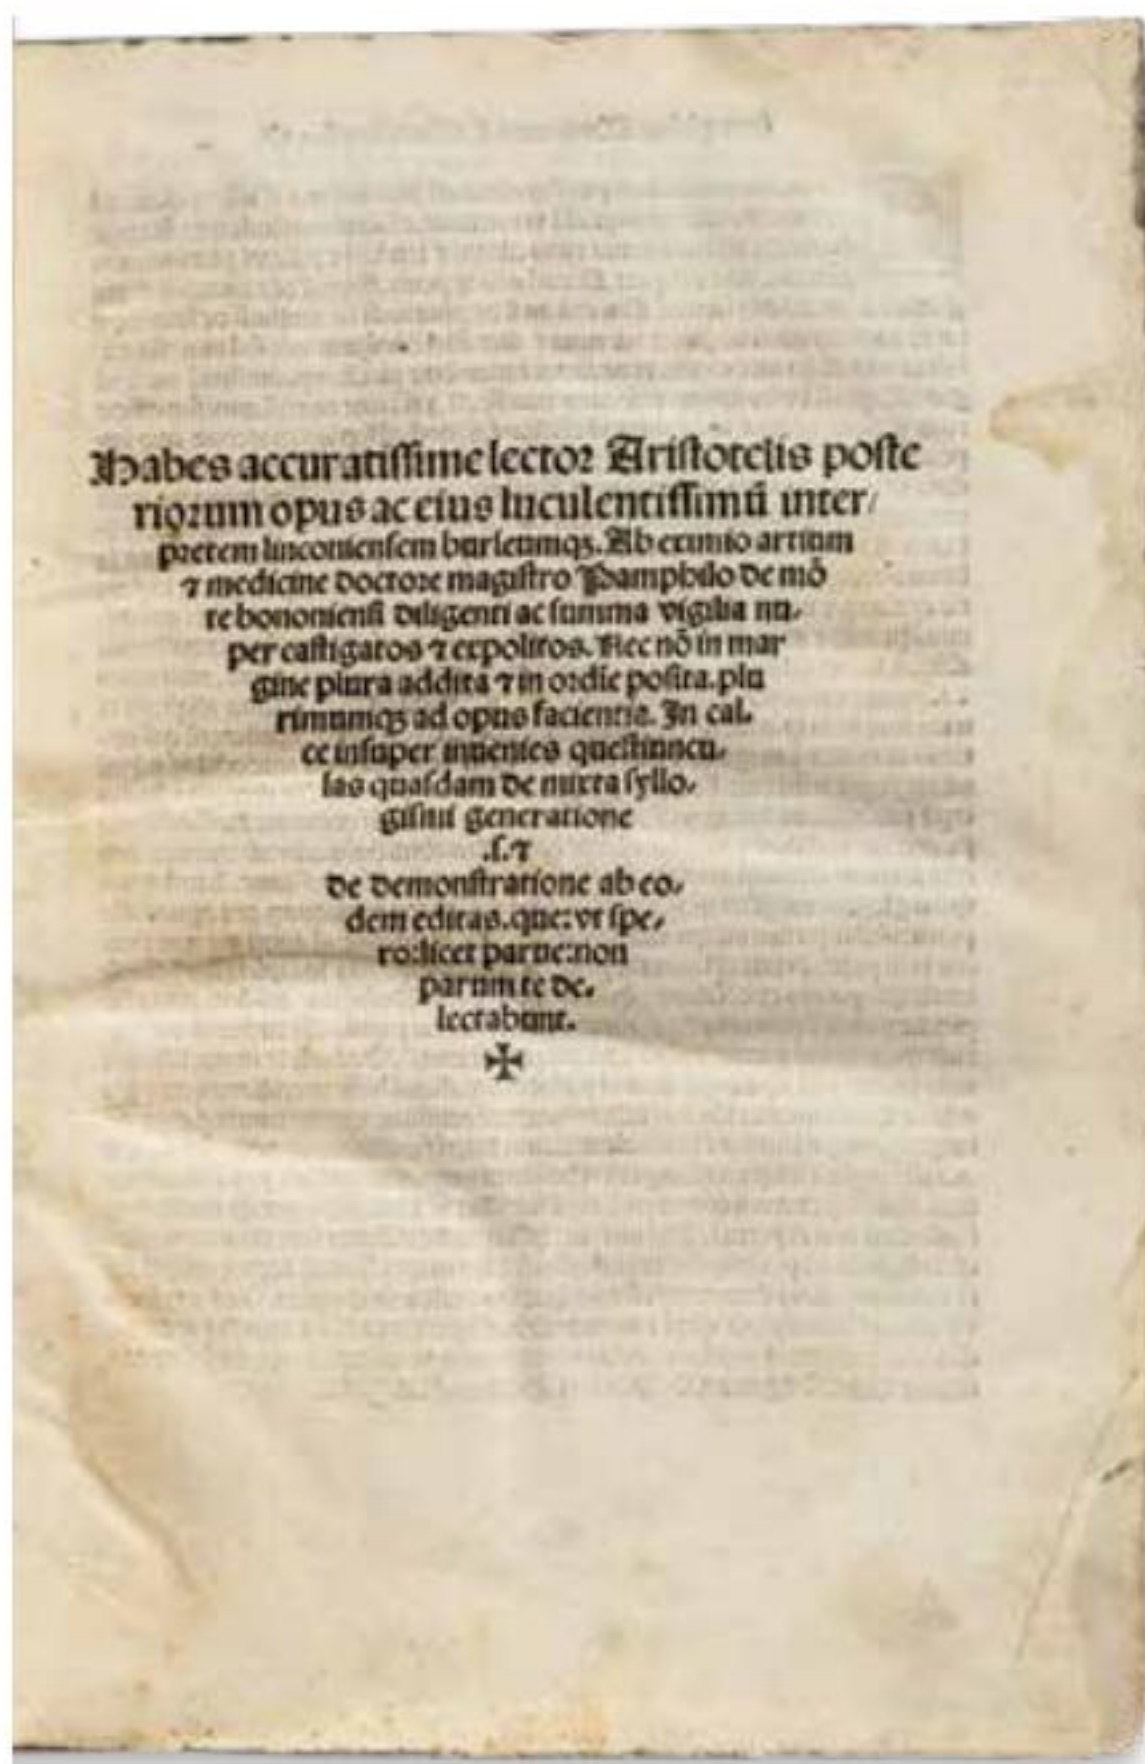 Habes accuratissime lector Aristotelis poste
riorum opus ac eius luculentissimū inter/
pretem linconiensem burleumqꝫ. Ab eximio artium
⁊ medicine doctore magistro Pamphilo de mō
te bononiensi diligenti ac summa vigilia nu-
per castigatos ⁊ expolitos. Nec nō in mar
gine plura addita ⁊ in ordīe posita. plu
rimumqꝫ ad opus facientia. In cal-
ce insuper inuenies questiuncu-
las quasdam de mixta syllo-
gismi generatione
.s. ⁊
de demonstratione ab eo-
dem editas. que: vt spe-
ro: licet parue: non
parum te de-
lectabunt.